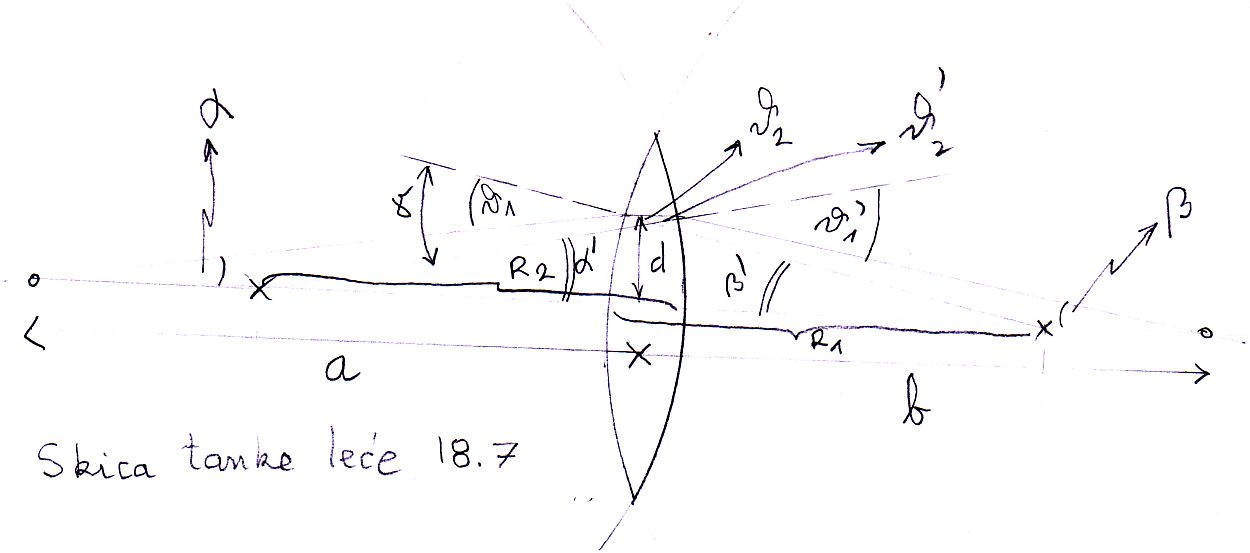 α
ϑ₂
ϑ₂'
γ
ϑ₁
ϑ₁'
β
R₂
α'
d
β'
R₁
a
b
Skica tanke leće 18.7